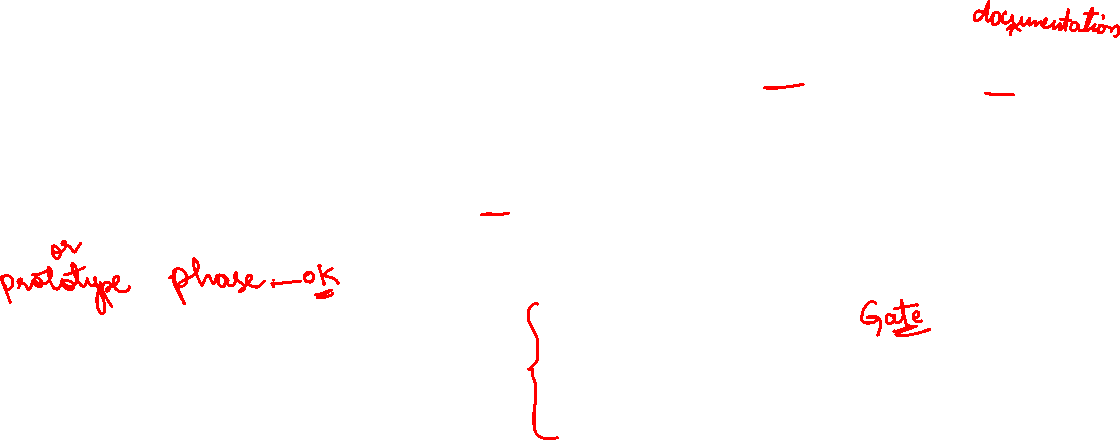 documentation
or
prototype phase - OK
Gate